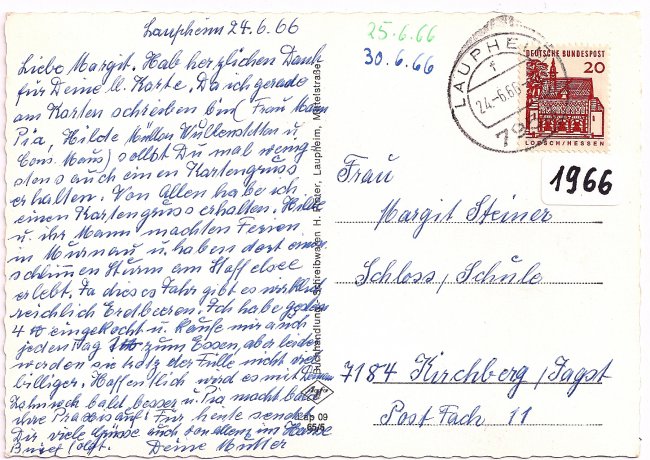 Laupheim 24.6.66
Liebe Margit. Hab herzlichen Dank
für Deine lb. Karte. Da ich gerade
am Karten schreiben bin (Frau
Pia, Hilde Müller Wullenstetten u.
Cons. Maus) sollst Du mal wenig
stens auch einen Kartengruss
erhalten. Von Allen habe ich
einen Kartengruss erhalten. Hilde
u. ihr Mann machten Ferien
in Murnau u. haben dort einen
schlimmen Sturm am Staffelsee
erlebt. Ja dieses Jahr gibt es wirklich
reichlich Erdbeeren. Ich habe gestern
4 eingekocht u. kaufe mir auch
jeden Tag zum Essen, aber leider
werden sie trotz der Fülle nicht
billiger. Hoffentlich wird es mit Deinem
Zahnweh bald besser u. Pia macht bald
ihre Praxis auf! Für heute sendet
Dir viele Grüsse auch von allen im Hause
Brief folgt. Deine Mutter
25.6.66
30.6.66
Buchhandlung - Schreibwaren H. Laupheim, Mittelstraße
Lap 09
65/5
LAUPHEIM
1
24.-6.66
79
DEUTSCHE BUNDESPOST
20
LORSCH/HESSEN
1966
Frau
Margit Steiner
Schloss/Schule
7184 Kirchberg/Jagst
Post Fach 11